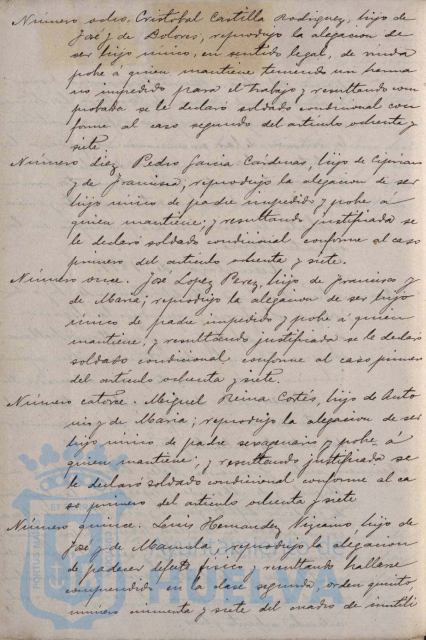 Número ocho. Cristobal Castilla Rodriguez, hijo de
José y de Dolores, reprodujo la alegacion de
ser hijo único, en sentido legal, de viuda
pobre á quien mantiene teniendo un herma
no impedido para el trabajo, y resultando com
probada se le declaró soldado condicional con
forme al caso segundo del artículo ochenta y
siete.
Número diez. Pedro Garcia Cardenas, hijo de Cipriano
y de Francisca; reprodujo la alegacion de ser
hijo único de padre impedido y pobre á
quien mantiene; y resultando justificada se
le declaró soldado condicional conforme al caso
primero del artículo ochenta y siete.
Número once. José Lopez Perez, hijo de Francisco y
de Maria; reprodujo la alegacion de ser hijo
único de padre impedido y pobre á quien
mantiene, y resultando justificada se le declaró
soldado condicional conforme al caso primero
del artículo ochenta y siete.
Número catorse. Miguel Reina Cortés, hijo de Anto
nio y de Maria; reprodujo la alegacion de ser
hijo único de padre sexagenario y pobre á
quien mantiene; y resultando justificada se
le declaró soldado condicional conforme al ca
so primero del artículo ochenta y siete
Número quince. Luis Hernandez Vizcaino, hijo de
José y de Manuela, reprodujo la alegacion
de padecer defecto fisico y resultando hallarse
comprendido en la clase segunda, orden quinto,
número cincuenta y siete del cuadro de inutili